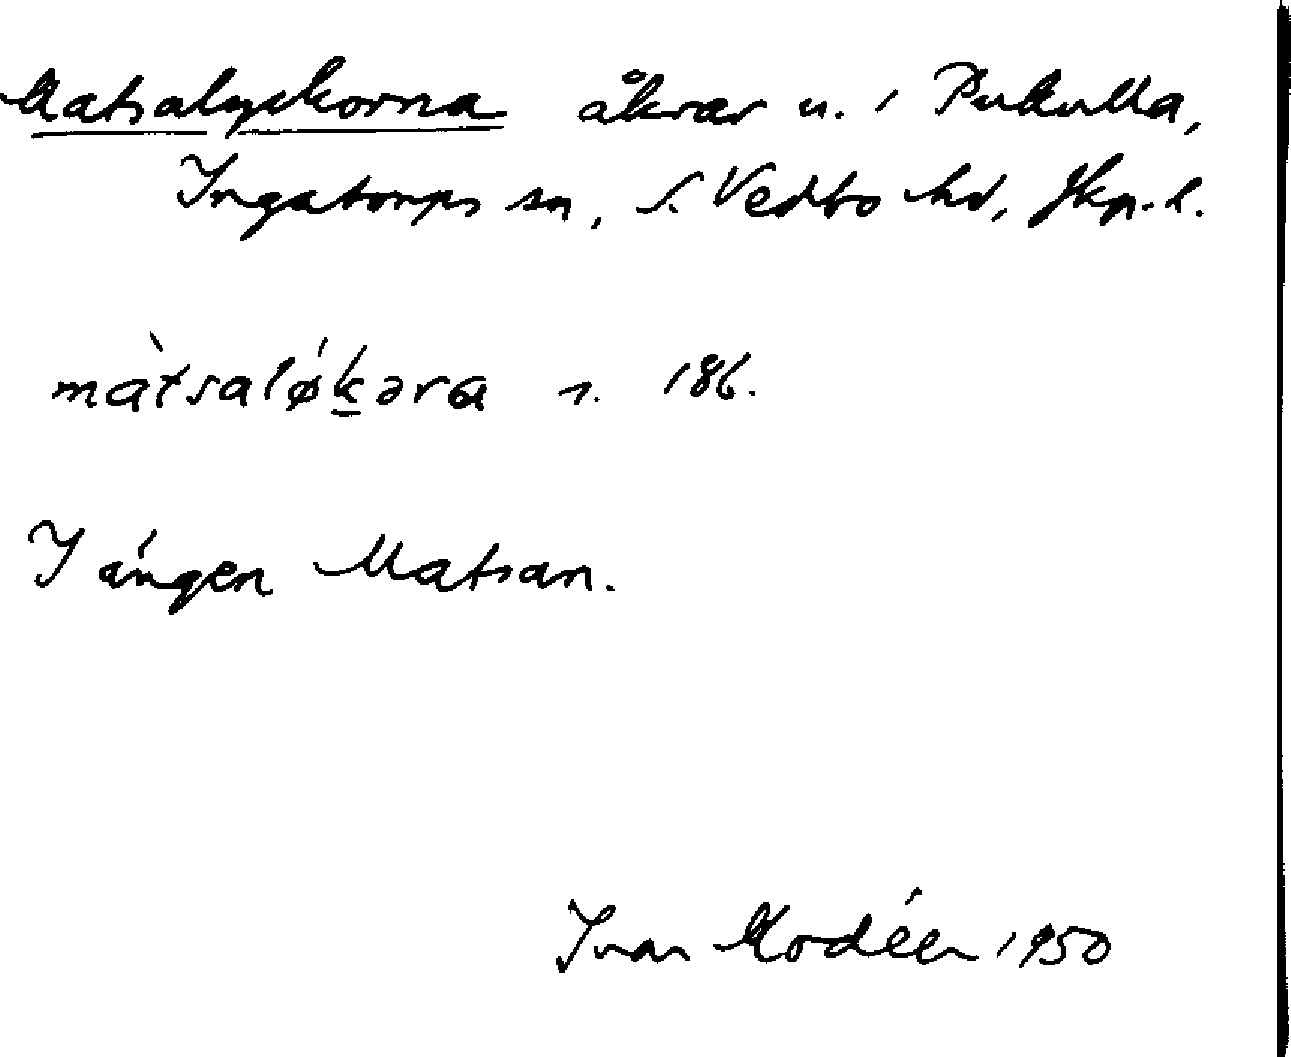 Matsalyckorna åkrar u. i Pukulla,
Ingatorps sn, S. Vedbo hd, Jkp. l.
màtsaløḵəra s. 186.
I ängen Matsan.
Ivar Modéer 1950